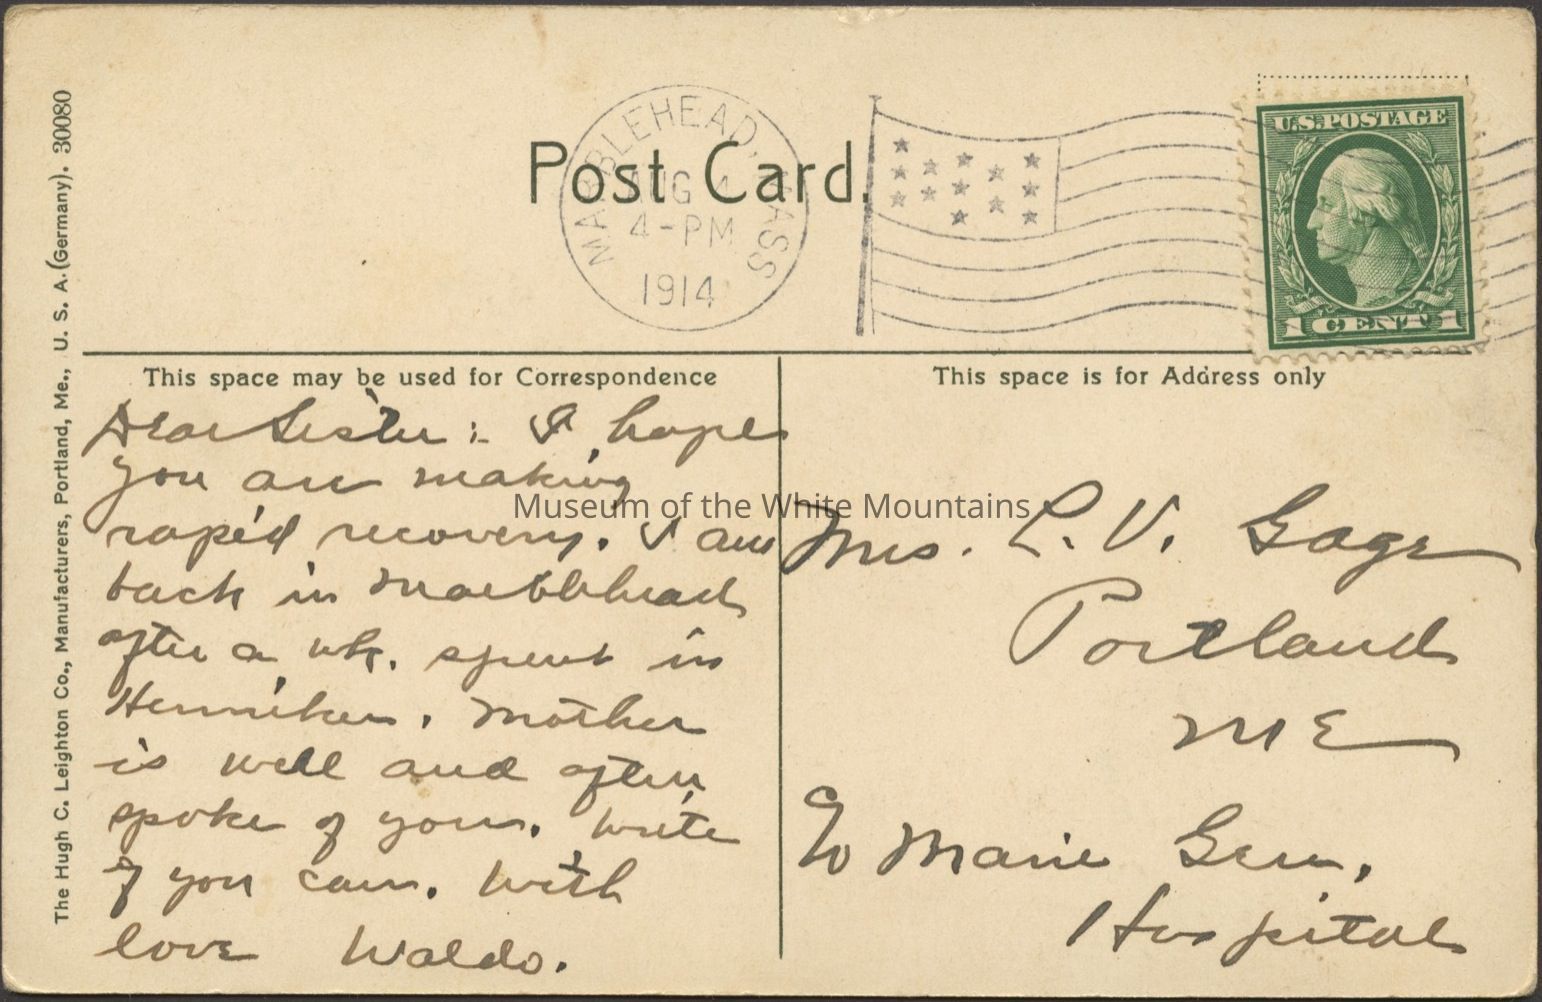 The Hugh C. Leighton Co., Manufacturers, Portland, Me., U. S. A. (Germany). 30080
Post Card.
MARBLEHEAD, MASS
AUG 4
4-PM
1914
U.S. POSTAGE
1 CENT 1
This space may be used for Correspondence
Dear Sister:- I hope
you are making
rapid recovery. I am
back in Marblehead
after a wk. spent in
Henniker. Mother
is well and often
spoke of you. Write
if you can. With
love Waldo.
This space is for Address only
Mrs. L. V. Gage
Portland
ME
Maine Gen.
Hospital
Museum of the White Mountains